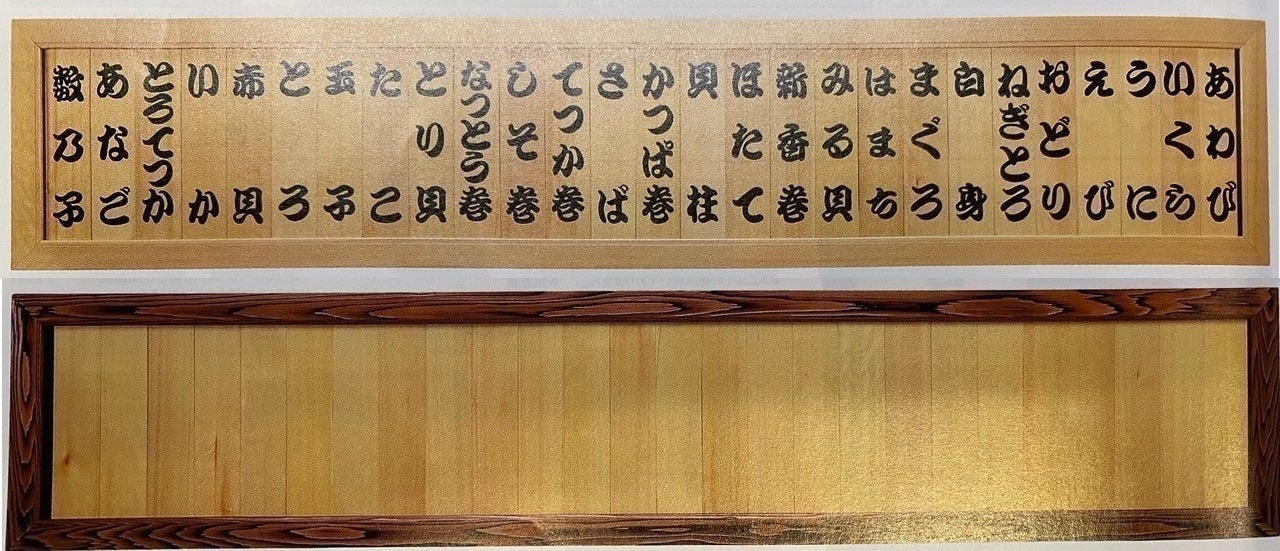 あわび
いくら
うに
えび
おどり
ねぎとろ
白身
まぐろ
はまち
みる貝
新香巻
ほたて
貝柱
かっぱ巻
さば
てっか巻
しそ巻
なっとう巻
とり貝
たこ
玉子
とろ
赤貝
いか
とろてっか
あなご
数乃子